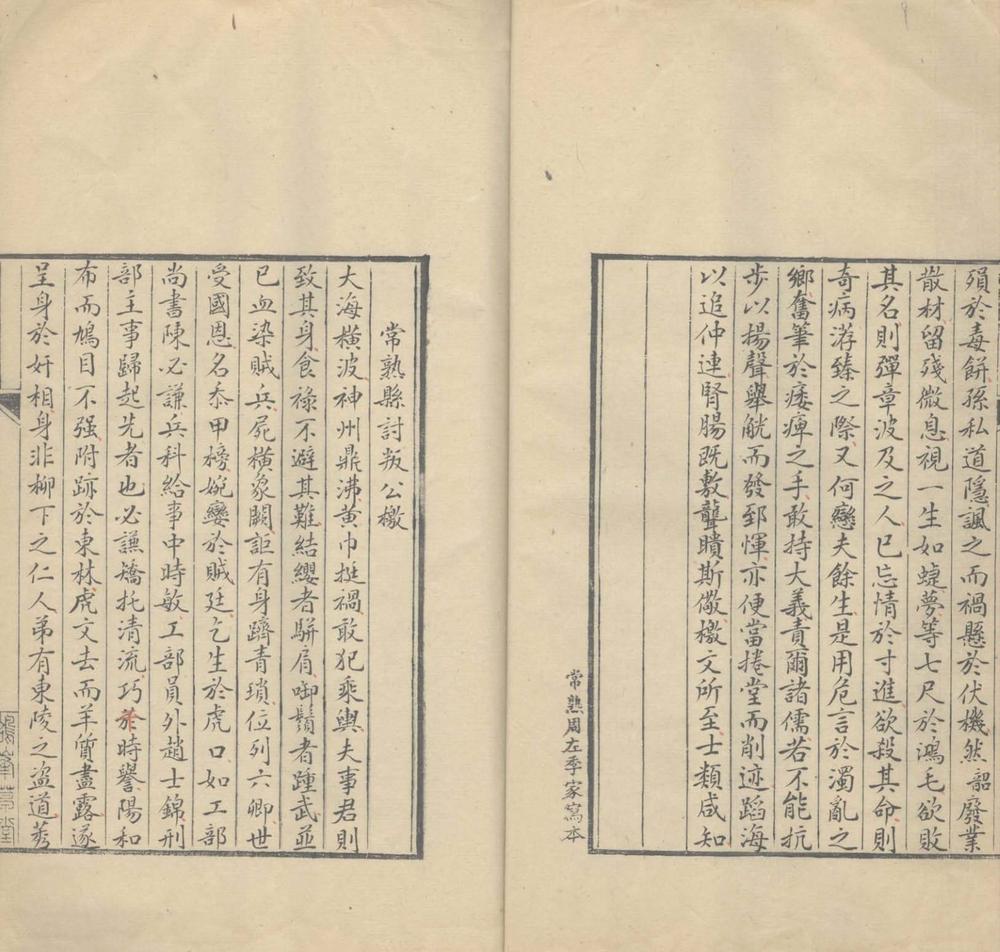 殞於毒餅孫私道隱諷之而禍懸於伏機然韶廢業
散材留殘微息視一生如蜨夢等七尺於鴻毛欲敗
其名則彈章波及之人已忘情於寸進欲殺其命則
奇病洊臻之際又何戀夫餘生是用危言於濁亂之
鄉奮筆於痿痺之手敢持大義責爾諸儒若不能抗
步以揚聲舉觥而發郅惲亦便當捲堂而削迹蹈海
以追仲連腎腸既敷聾聵斯儆檄文所至士類咸知
常熟周左季家寫本
常熟縣討叛公檄
大海橫波神州鼎沸黃巾挺禍敢犯乘輿夫事君則
致其身食祿不避其難結纓者駢肩啣鬚者踵武並
已血染賊兵屍橫象闕詎有身躋青瑣位列六卿世
受國恩名忝甲榜婉孌於賊廷乞生於虎口如工部
尚書陳必謙兵科給事中時敏工部員外趙士錦刑
部主事歸起先者也必謙矯托清流巧於時譽陽和
布而鳩目不强附跡於東林虎文去而羊質盡露遂
呈身於奸相身非柳下之仁人弟有東陵之盜道莠